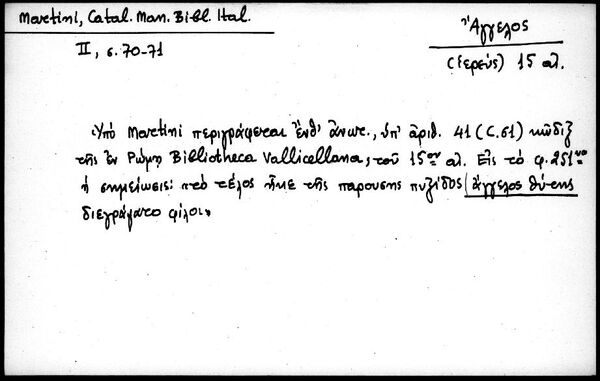 Martini, Catal. Man. Bibl. Ital.
II, σ. 70-71
Ἄγγελος
(ἱερεύς) 15 αἰ.
Ὑπὸ Martini περιγράφεται ἔνθ' ἀνωτ., ὑπ' ἀριθ. 41 (C.61) κῶδιξ
τῆς ἐν Ρώμῃ Bibliotheca Vallicellana, τοῦ 15ου αἰ. Εἰς τὸ φ. 251νο
ἡ σημείωσις: «τὸ τέλος ἧκε τῆς παρουσης πυξίδος / ἄγγελος θύτης
διεγράψατο φίλοι»